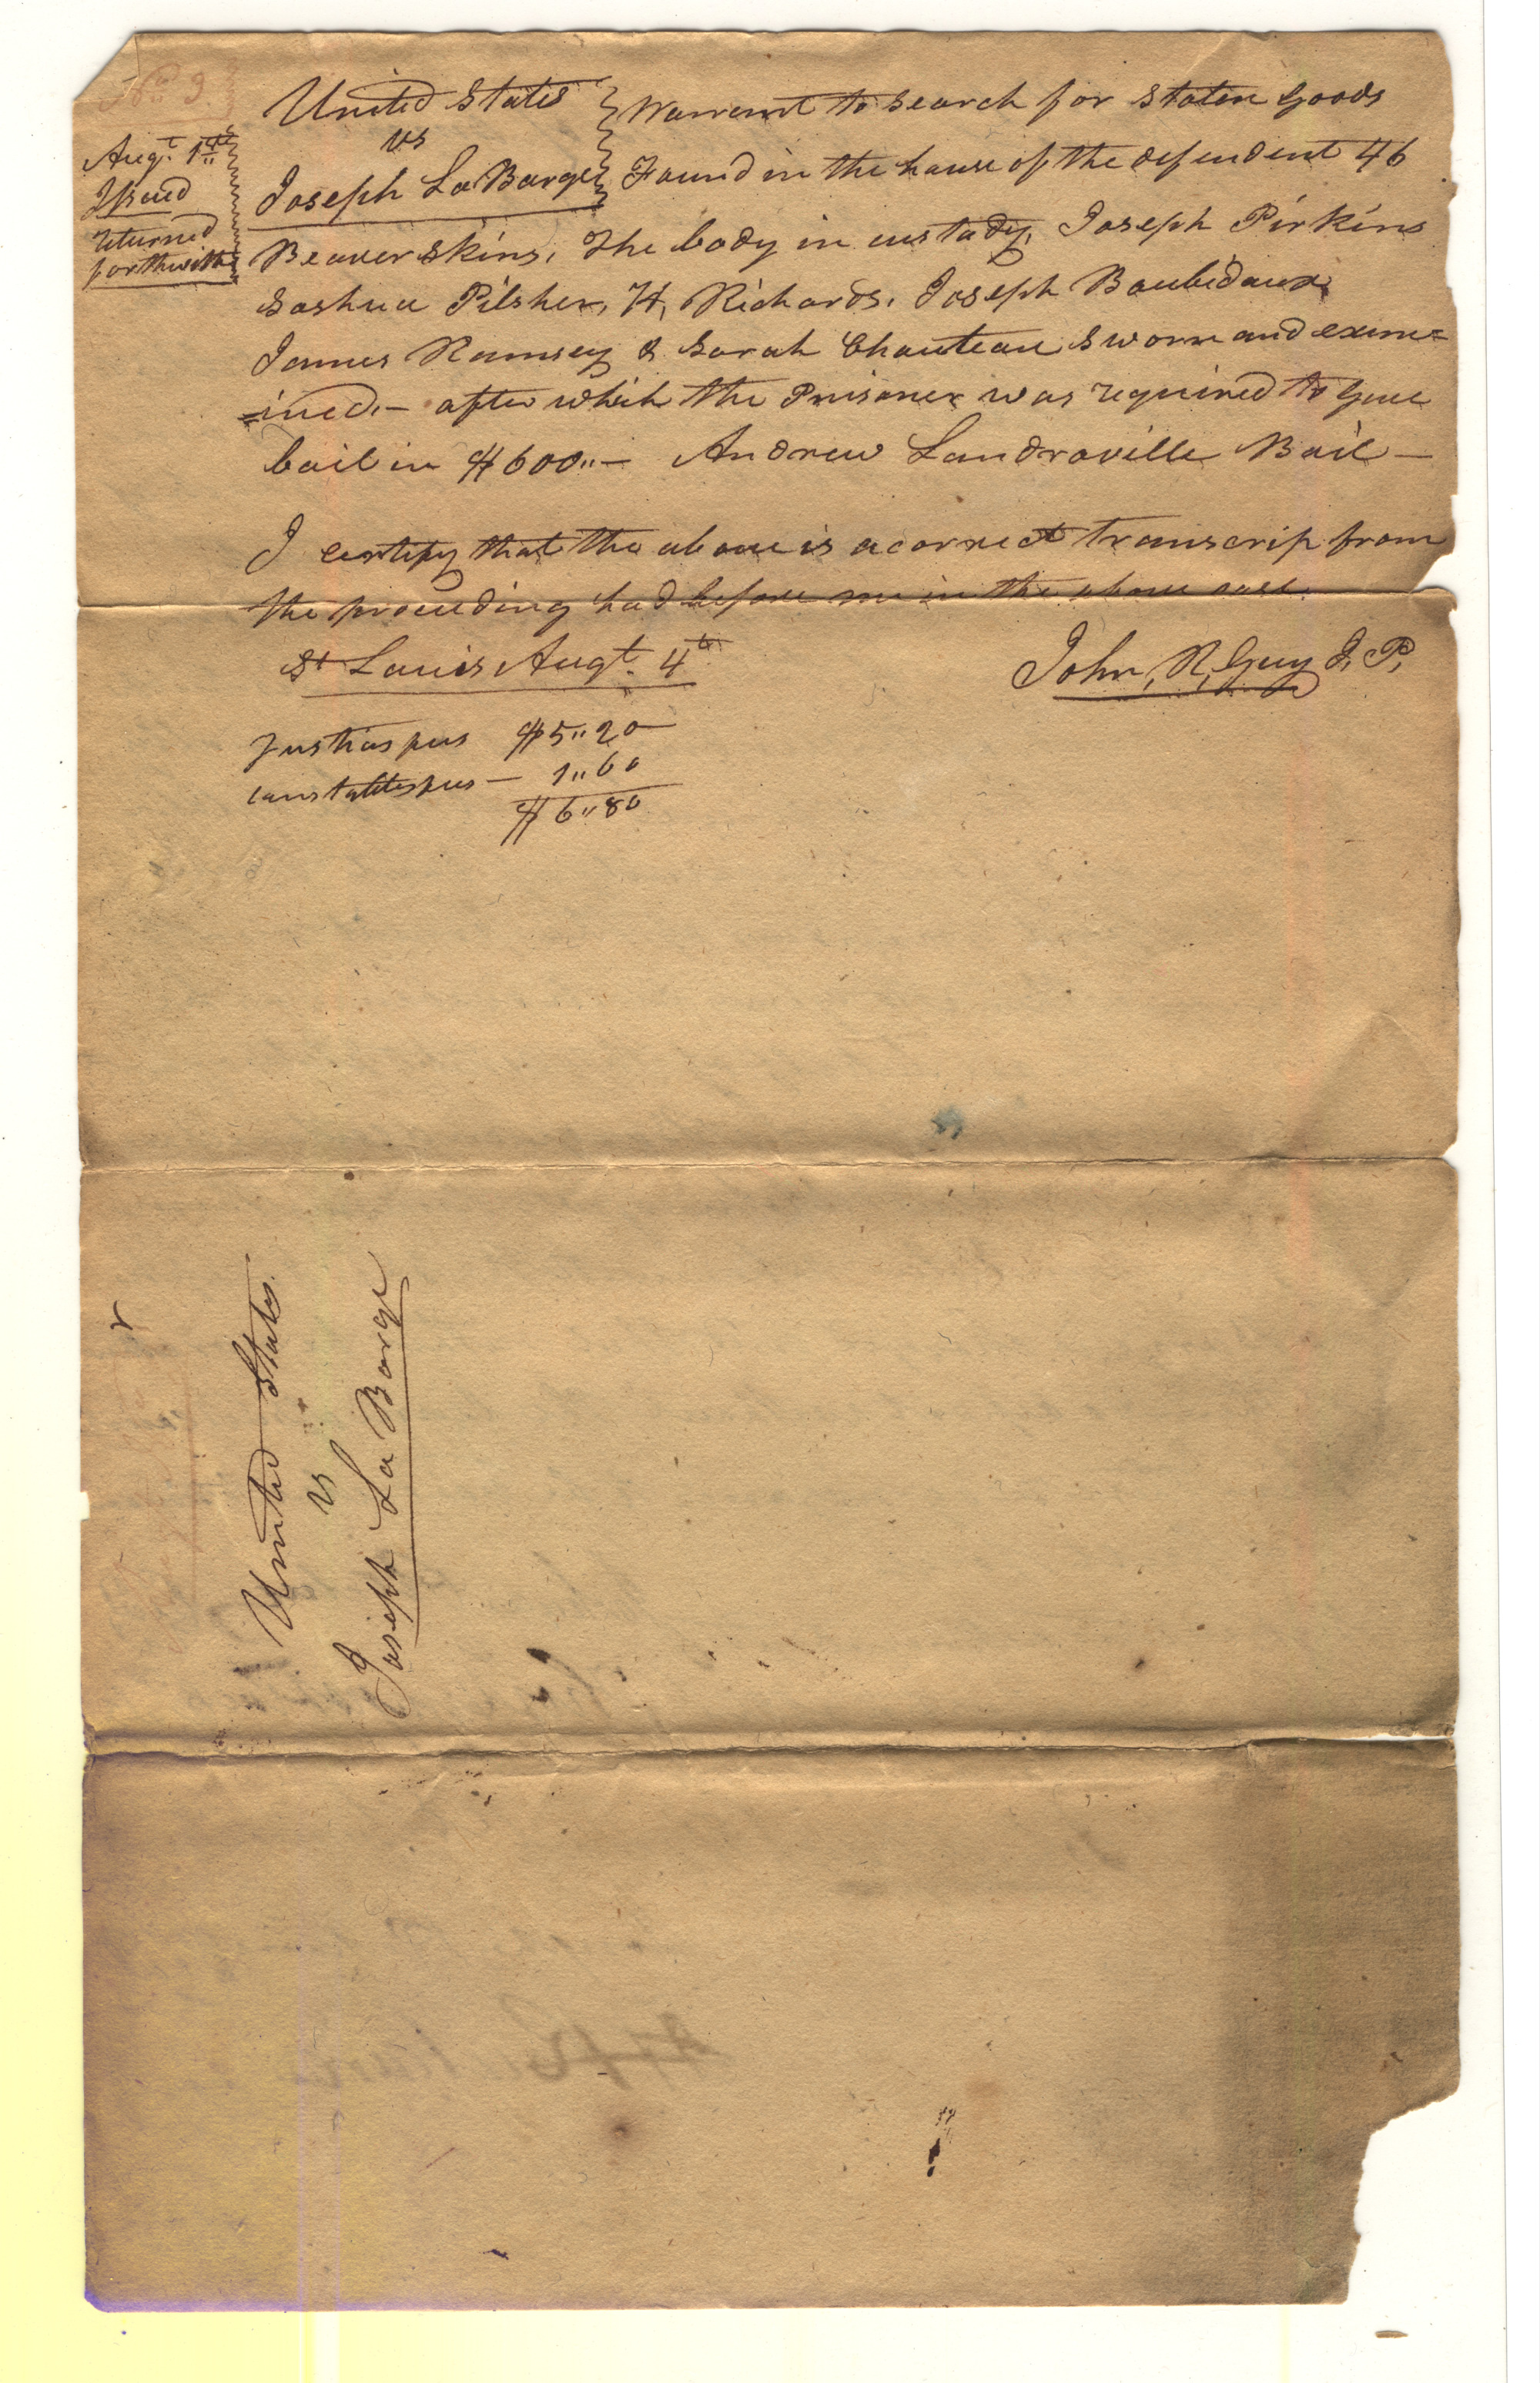 No. 9
United States
vs
Joseph La Barge
Augt. 1st
Issued
returned
forthwith
Warrent to search for stolen goods
Found in the house of the defendent 46
Beaver skins, The body in custady, Joseph Pirkins
Joshua Pilsher, H, Richards, Joseph Boubidaux,
James Ramsey & Sarah Chauteau Sworn and exam=
=ined,— after which the Prisoner was required to give
bail in $600..— Andrew Landraville Bail —
I certify that the above is a correct transcrip from
the proceeding had before me in the above case.
St Louis Augt. 4th
John, R, Guy J, P,
Justices fees $5..20
constables fees — 1..60
$6..80
United States
vs
Joseph La Barge